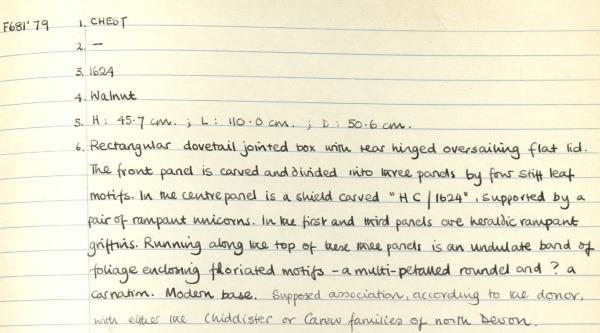 F681'79 1. CHEST
2. —
3. 1624
4. Walnut
5. H : 45.7 cm. ; L : 110.0 cm. ; D : 50.6 cm.
6. Rectangular dovetail jointed box with rear hinged oversailing flat lid.
The front panel is carved and divided into three panels by four stiff leaf
motifs. In the centre panel is a shield carved "HC/1624", supported by a
pair of rampant unicorns. In the first and third panels are heraldic rampant
griffins. Running along the top of these three panels is an undulate band of
foliage enclosing floriated motifs - a multi-petalled roundel and ? a
carnation. Modern base. Supposed association, according to the donor,
with either the Chiddister or Carew families of north Devon.